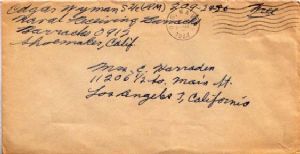 Edgar Wyman S2/c (RM) 239-24 Free
Naval Receiving Barracks
Barracks 0912
Shoemaker, Calif.
Mrs. E. Harraden
11206 1/2 So. Main St.
Los Angeles 3, California